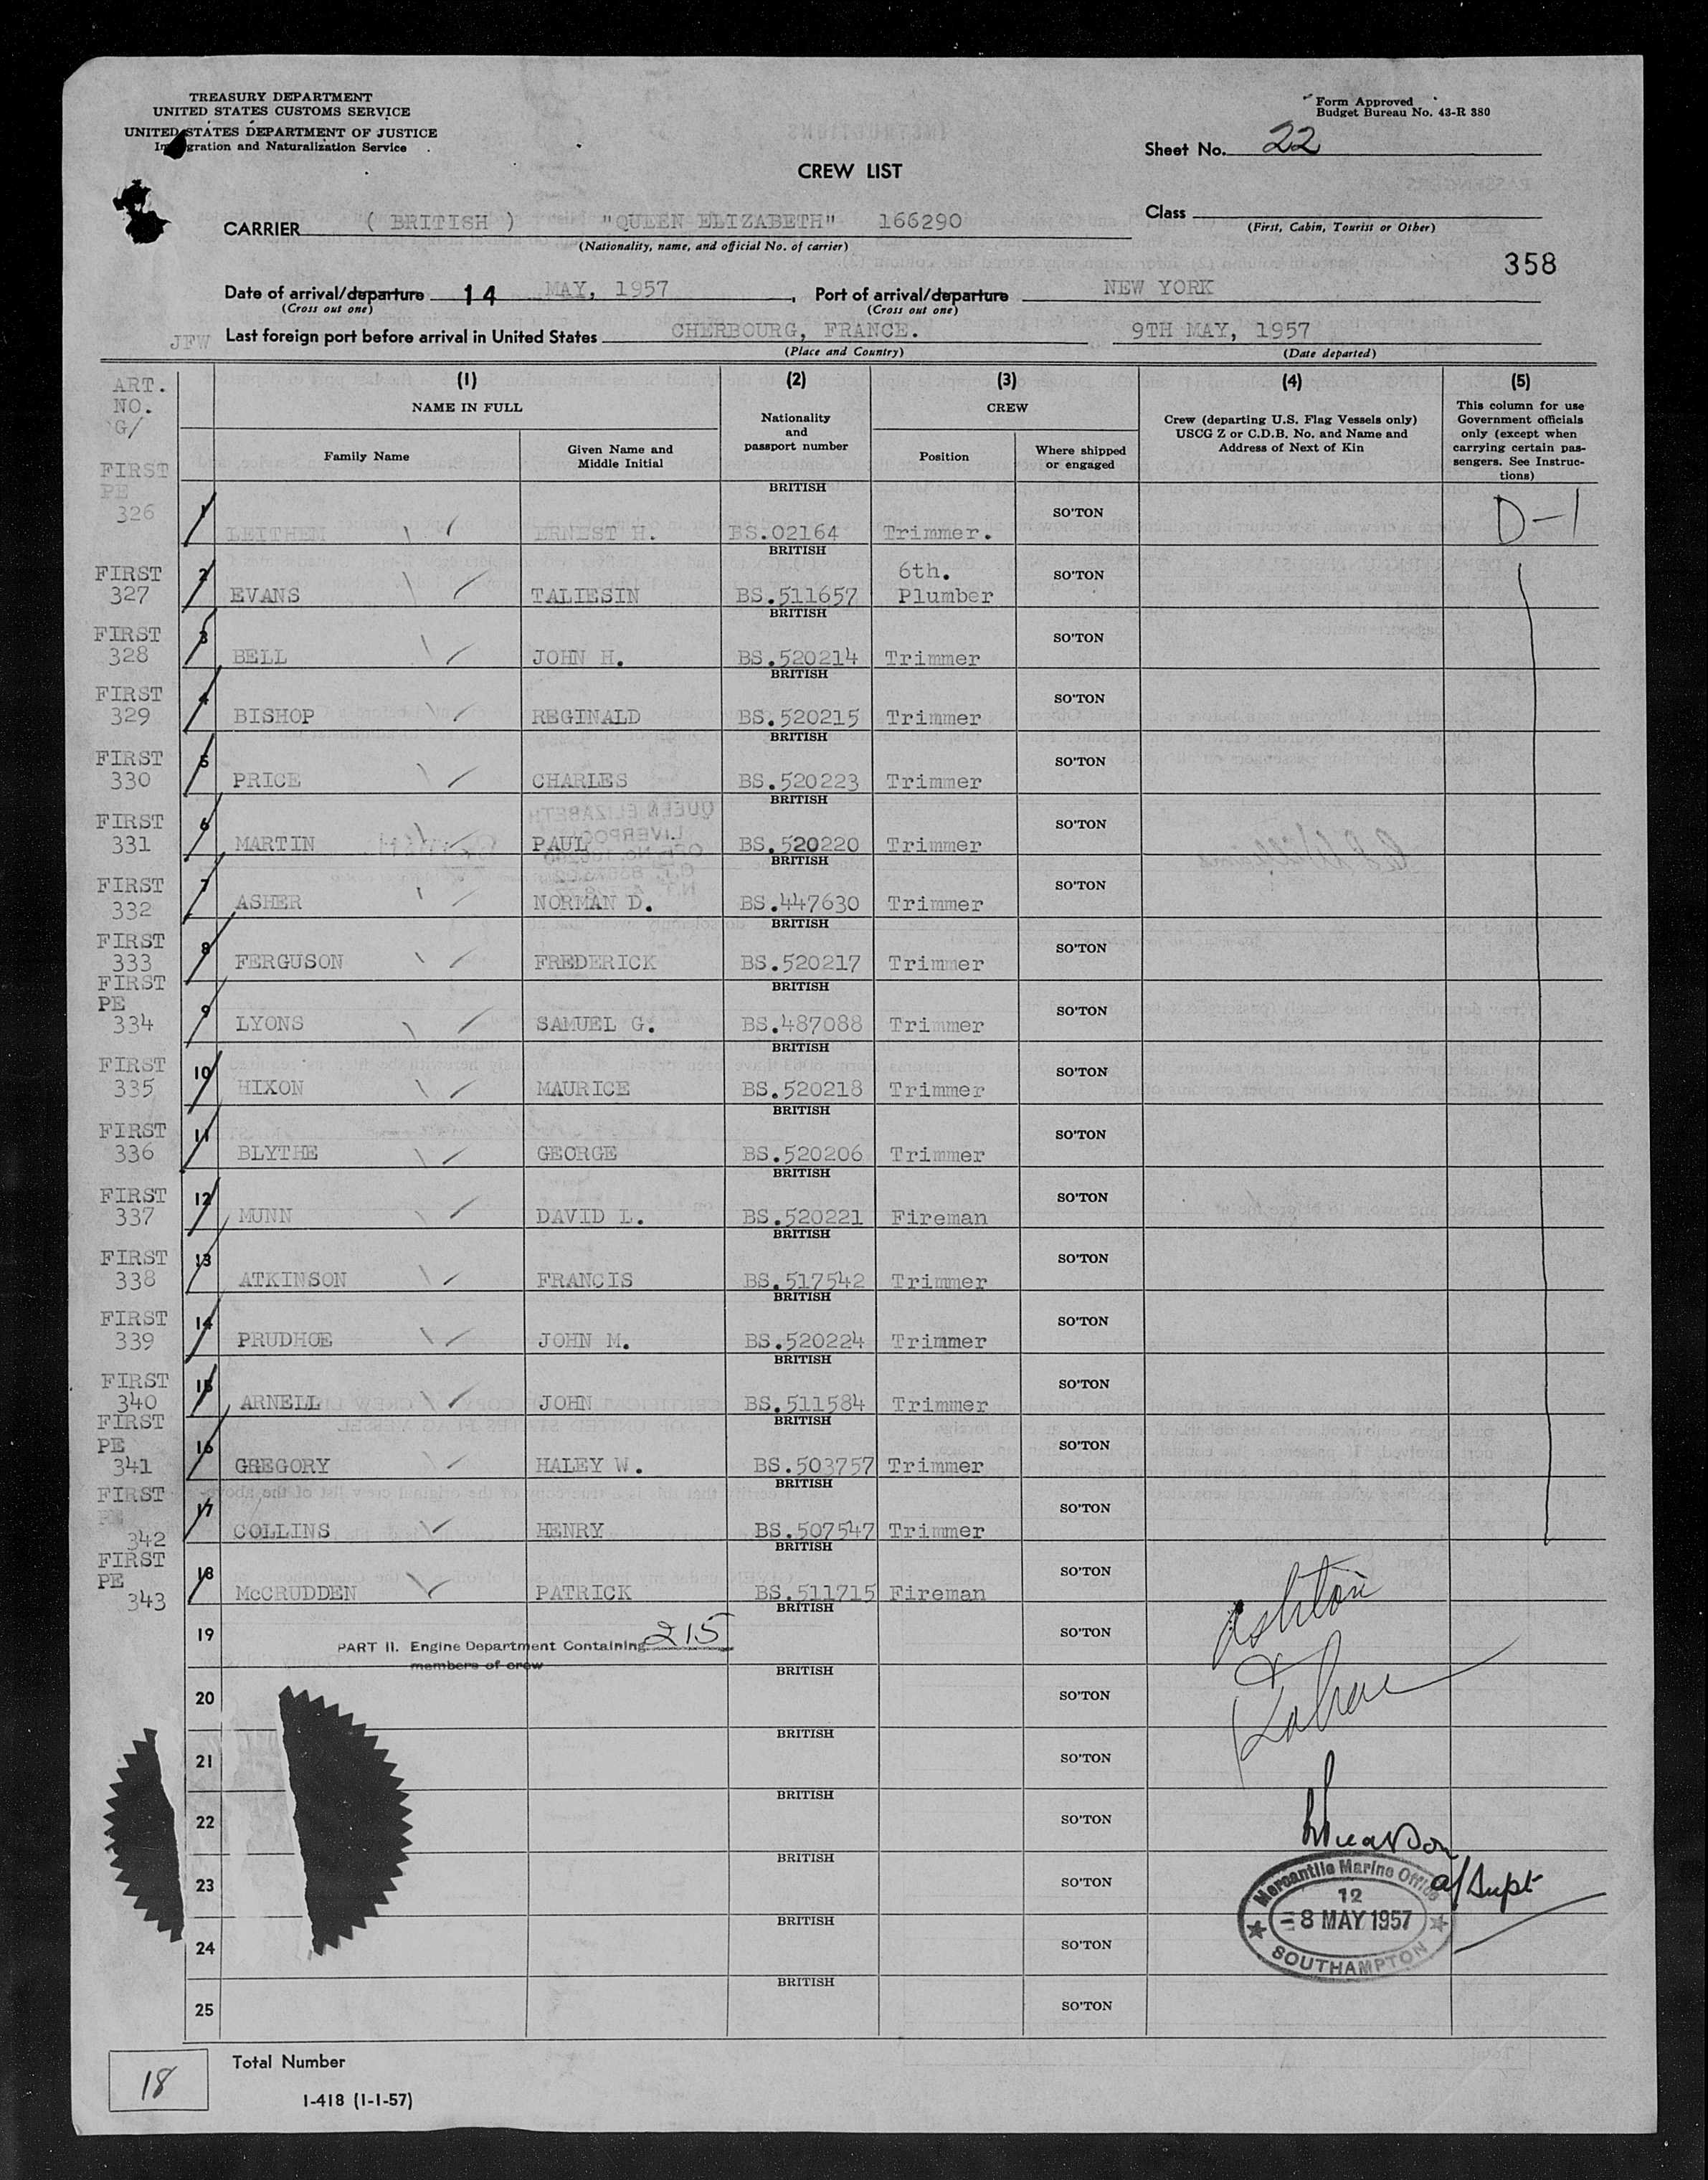 TREASURY DEPARTMENT
UNITED STATES CUSTOMS SERVICE
UNITED STATES DEPARTMENT OF JUSTICE
Immigration and Naturalization Service
Form Approved
Budget Bureau No. 43-R 380
Sheet No. 22
CREW LIST
CARRIER ( BRITISH ) "QUEEN ELIZABETH" 166290
(Nationality, name, and official No. of carrier)
Class
(First, Cabin, Tourist or Other)
358
Date of arrival/departure 14 MAY, 1957, Port of arrival/departure NEW YORK
(Cross out one) (Cross out one)
JFW Last foreign port before arrival in United States CHERBOURG, FRANCE. 9TH MAY, 1957
(Place and Country) (Date departed)
ART. NO. G/ (1) NAME IN FULL (2) Nationality and passport number (3) CREW (4) Crew (departing U.S. Flag Vessels only) USCG Z or C.D.B. No. and Name and Address of Next of Kin (5) This column for use Government officials only (except when carrying certain passengers. See Instructions)
Family Name Given Name and Middle Initial Position Where shipped or engaged
FIRST PE 326 1 LEITHEM ERNEST H. BRITISH BS.02164 Trimmer. SO'TON D-1
FIRST 327 2 EVANS TALIESIN BRITISH BS.511657 6th. Plumber SO'TON
FIRST 328 3 BELL JOHN H. BRITISH BS.520214 Trimmer SO'TON
FIRST 329 4 BISHOP REGINALD BRITISH BS.520215 Trimmer SO'TON
FIRST 330 5 PRICE CHARLES BRITISH BS.520223 Trimmer SO'TON
FIRST 331 6 MARTIN PAUL BRITISH BS.520220 Trimmer SO'TON
FIRST 332 7 ASHER NORMAN D. BRITISH BS.447630 Trimmer SO'TON
FIRST 333 8 FERGUSON FREDERICK BRITISH BS.520217 Trimmer SO'TON
FIRST PE 334 9 LYONS SAMUEL G. BRITISH BS.487088 Trimmer SO'TON
FIRST 335 10 HIXON MAURICE BRITISH BS.520218 Trimmer SO'TON
FIRST 336 11 BLYTHE GEORGE BRITISH BS.520206 Trimmer SO'TON
FIRST 337 12 MUNN DAVID L. BRITISH BS.520221 Fireman SO'TON
FIRST 338 13 ATKINSON FRANCIS BRITISH BS.517542 Trimmer SO'TON
FIRST 339 14 PRUDHOE JOHN M. BRITISH BS.520224 Trimmer SO'TON
FIRST 340 15 ARNELL JOHN BRITISH BS.511584 Trimmer SO'TON
FIRST PE 341 16 GREGORY HALEY W. BRITISH BS.503757 Trimmer SO'TON
FIRST PE 342 17 COLLINS HENRY BRITISH BS.507547 Trimmer SO'TON
FIRST PE 343 18 McCRUDDEN PATRICK BRITISH BS.511715 Fireman SO'TON
19 PART II. Engine Department Containing 215 members of crew BRITISH SO'TON
20 BRITISH SO'TON
21 BRITISH SO'TON
22 BRITISH SO'TON
23 BRITISH SO'TON
24 BRITISH SO'TON
25 BRITISH SO'TON
Ashton
a/Supt
Mercantile Marine Office
12
-8 MAY 1957
SOUTHAMPTON
18 Total Number
I-418 (1-1-57)